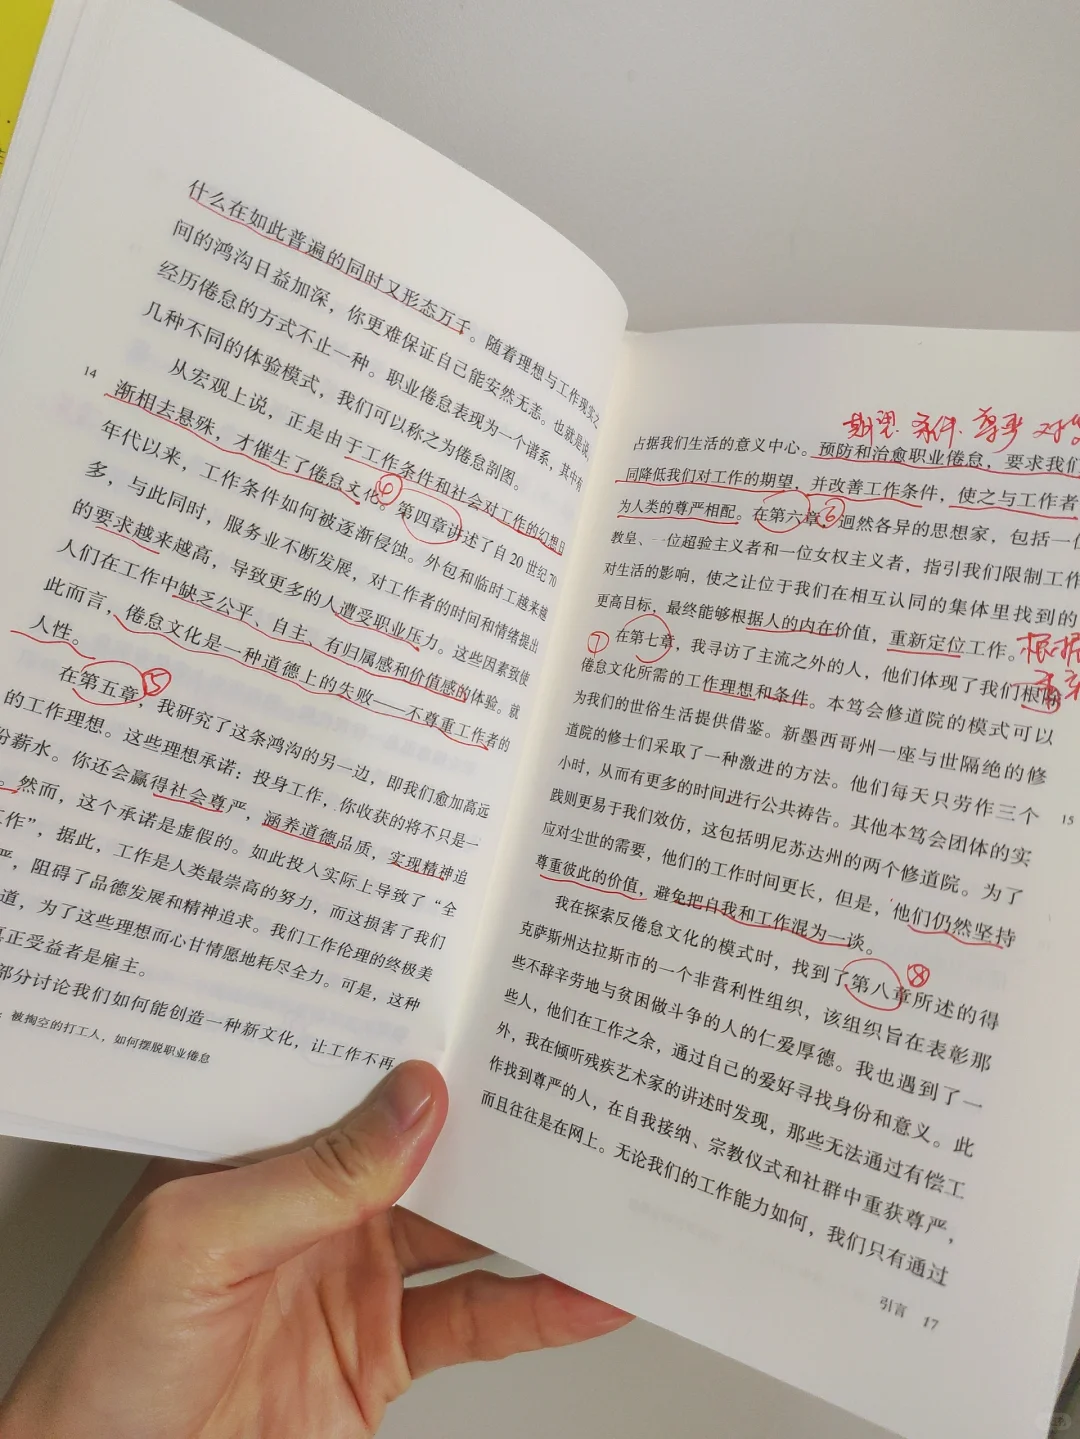 什么在如此普遍的同时又形态万千。随着理想与工作现实之
间的鸿沟日益加深，你更难保证自己能安然无恙。也就是说，
经历倦怠的方式不止一种。职业倦怠表现为一个谱系，其中有
几种不同的体验模式，我们可以称之为倦怠剖图。
14
从宏观上说，正是由于工作条件和社会对工作的幻想日
渐相去悬殊，才催生了倦怠文化。第四章讲述了自20世纪70
④
年代以来，工作条件如何被逐渐侵蚀。外包和临时工越来越
多，与此同时，服务业不断发展，对工作者的时间和情绪提出
的要求越来越高，导致更多的人遭受职业压力。这些因素致使
人们在工作中缺乏公平、自主、有归属感和价值感的体验。就
此而言，倦怠文化是一种道德上的失败——不尊重工作者的
人性。
在第五章，我研究了这条鸿沟的另一边，即我们愈加高远
⑤
的工作理想。这些理想承诺：投身工作，你收获的将不只是一
份薪水。你还会赢得社会尊严，涵养道德品质，实现精神追
。然而，这个承诺是虚假的。如此投入实际上导致了“全
工作”，据此，工作是人类最崇高的努力，而这损害了我们
严，阻碍了品德发展和精神追求。我们工作伦理的终极美
道，为了这些理想而心甘情愿地耗尽全力。可是，这种
真正受益者是雇主。
部分讨论我们如何能创造一种新文化，让工作不再
：被掏空的打工人，如何摆脱职业倦怠
期望 条件 尊严 对等
占据我们生活的意义中心。预防和治愈职业倦怠，要求我们
同降低我们对工作的期望，并改善工作条件，使之与工作者
为人类的尊严相配。在第六章，迥然各异的思想家，包括一位
⑥
教皇、一位超验主义者和一位女权主义者，指引我们限制工作
对生活的影响，使之让位于我们在相互认同的集体里找到的
更高目标，最终能够根据人的内在价值，重新定位工作。
根据
⑦
在第七章，我寻访了主流之外的人，他们体现了我们根除
倦怠文化所需的工作理想和条件。本笃会修道院的模式可以
为我们的世俗生活提供借鉴。新墨西哥州一座与世隔绝的修
道院的修士们采取了一种激进的方法。他们每天只劳作三个
小时，从而有更多的时间进行公共祷告。其他本笃会团体的实
15
践则更易于我们效仿，这包括明尼苏达州的两个修道院。为了
应对尘世的需要，他们的工作时间更长，但是，他们仍然坚持
尊重彼此的价值，避免把自我和工作混为一谈。
我在探索反倦怠文化的模式时，找到了第八章所述的得
⑧
克萨斯州达拉斯市的一个非营利性组织，该组织旨在表彰那
些不辞辛劳地与贫困做斗争的人的仁爱厚德。我也遇到了一
些人，他们在工作之余，通过自己的爱好寻找身份和意义。此
外，我在倾听残疾艺术家的讲述时发现，那些无法通过有偿工
作找到尊严的人，在自我接纳、宗教仪式和社群中重获尊严，
而且往往是在网上。无论我们的工作能力如何，我们只有通过
引言 17